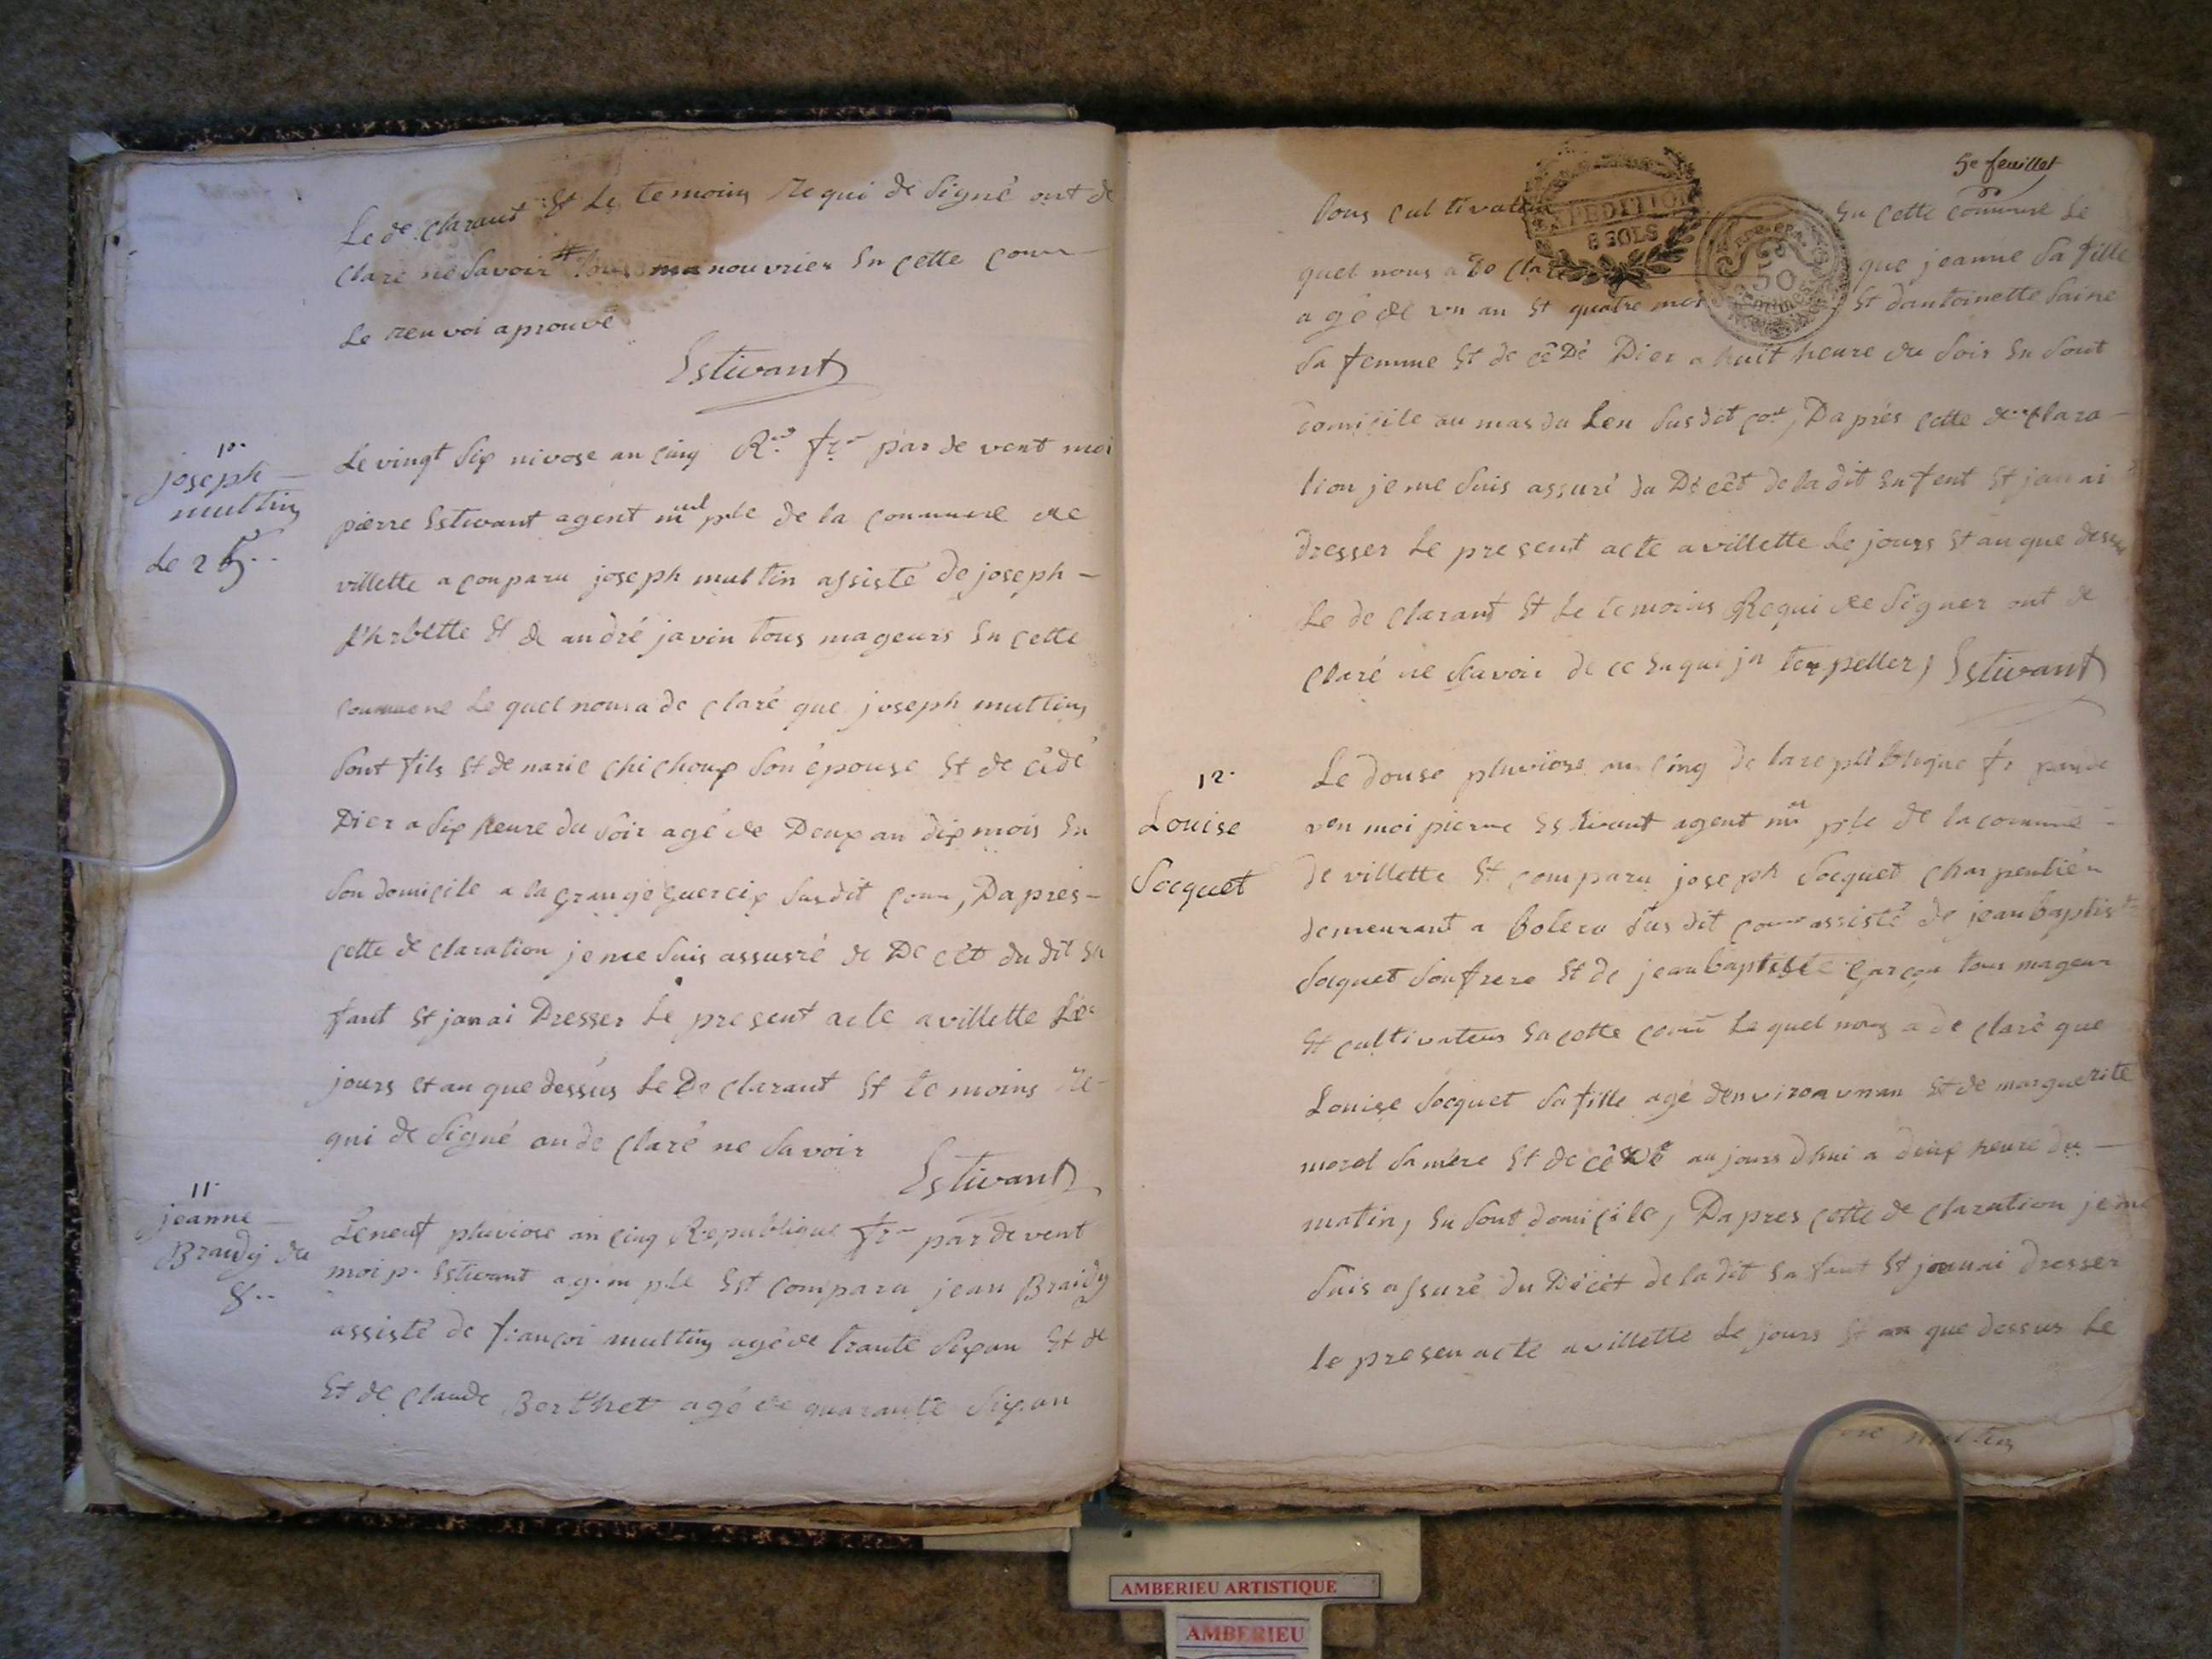 Le de clarant St Le temoin Requi de Signé ont de
claré ne Savoir # tous manouvrier Sn cette com
Le renvoi aprouvé
Estivant
10.
joseph
multin
de 25..
Le vingt Six nivose an cinq R.ue fr.se par de vent moi
pierre Estivant agent mul ple de la commune de
villette a conparu joseph multin assisté de joseph
St de andré javin tous mageurs Sn cette
commune Le quel nous a de claré que joseph multin
Sont fils St de marie chichoux Son épouse St de cédé
Dier a Six heure du Soir agé de Deux an dix mois Sn
Son domicile a la Grange Guercix Susdit com, Daprès
cette de claration je me Suis assusré de De cét du dit Sn
fant St janai Dresser Le present acte a villette Le
jours et an que dessus Le De clarant St te moins Re
qui de Signé on de claré ne Savoir
Estivant
11.
jeanne
Braidy du
8..
Le neuf pluviose an cinq Republique fr.se par de vent
moi p. Estivant ag. m ple Est comparu jean Braidy
assisté de françoi multin agé de trante Six an St de
St de claude Berthet agé de quarante Six an
5e feuillet
tous cultivateur Sn cette commune Le
EXPEDITION
8 SOLS
50
quel nous a de claré que jeanne Sa fille
agé de un an St quatre mois St dantoinette Saine
Sa femme St de cêDé Dier a huit heure du Soir Sn Sont
domicile au mas du Leu Susdit com, Daprés cette de clara
tion je me Suis assuré du Décêt de la dit Snfent St janai
dresser Le present acte a villette Le jours St an que dessus
Le de clarant St Le temoins Requi de Signer ont de
claré ne Savoir de ce Sn qui jn terpeller, Estivant
12.
Louise
Socquet
Le douse pluviose an cinq de la re publique fr par de
ven moi pierre Estivant agent m ple de la commune
de villette St comparu joseph Socquet charpentiér
demeurant a Bolera Sus dit com assisté de jean baptist
Socquet Son frere St de jean baptiste Garçon tous mageur
St cultivateur Sn cette com Le quel nous a de claré que
Louise Socquet Sa fille agé denviron un an St de marguerite
morel Sa mére St de cêdé au jours dhui a deux heure du
matin, Sn Sont domicile, Dapres cette de claration je me
Suis assuré du Décèt de la dit Sn fant St janai dresser
le presen acte a villette Le jours St an que dessus Le
multin
AMBERIEU ARTISTIQUE
AMBERIEU